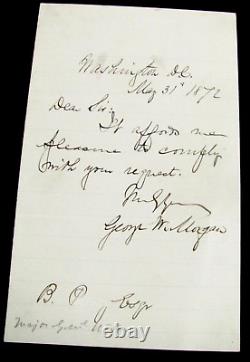 Washington D.C.
May 31st 1872
Dear Sir:
It affords me
pleasure to comply
with your request.
George W. Morgan
B. P. Esqr
Major Gen'l